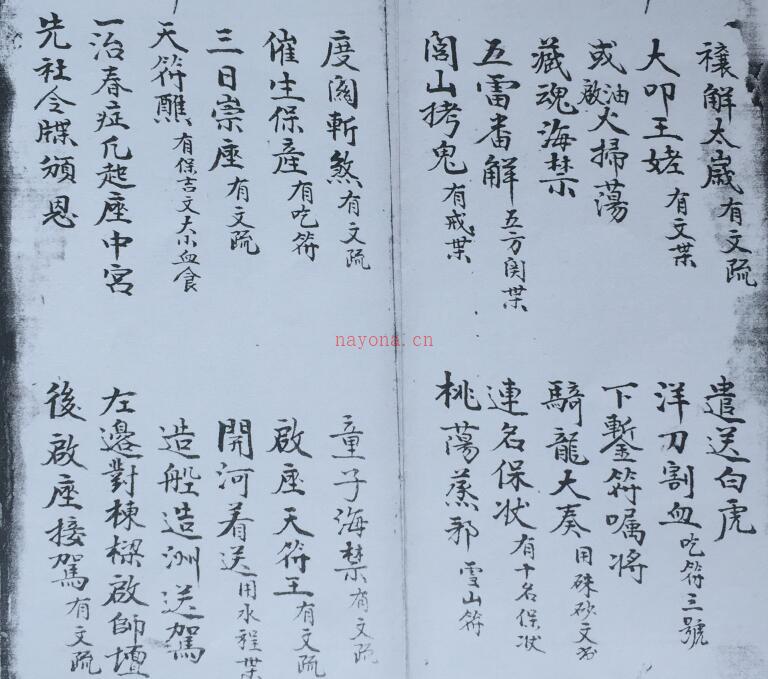 禳解太歲有文疏
遣送白虎
大叩王姥有文枼
洋刀割血吃符三號
或啟油火掃蕩
下蹔符嘱将
藏魂海禁
騎龍大奏用硃砂文书
五雷番解五方関枼
連名保状有十名保状
閭山拷鬼有戒枼
桃蕩蒸邪雪山符
度関斬煞有文疏
童子海禁有文疏
催生保產有吃符
啟座天符王有文疏
三日崇座有文疏
開河看送用水程枼
天符醮有保言文大小血食
造船造洲送駕
一治春症凡起座中宮
左邊對棟樑啟師壇
先社令牒頒恩
後啟座接駕有文疏
nayona.cn